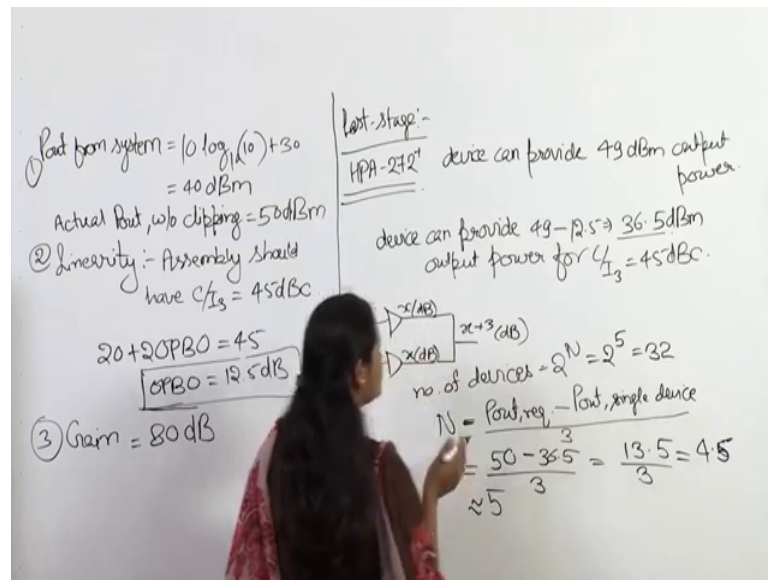 ① Pout from system = 10 log10(10) + 30
= 40 dBm
Actual Pout, w/o clipping = 50 dBm
② Linearity :- Assembly should
have C/I3 = 45 dBC
20 + 2OPBO = 45
OPBO = 12.5 dB
③ Gain = 80 dB
Last-stage :-
HPA-272+ device can provide 49 dBm output
power.
device can provide 49 - 12.5 ⇒ 36.5 dBm
output power for C/I3 = 45 dBC.
x(dB)
x+3(dB)
x(dB)
no. of devices = 2^N = 2^5 = 32
N = Pout,req. - Pout, single device / 3
= 50 - 36.5 / 3 = 13.5 / 3 = 4.5
≈ 5